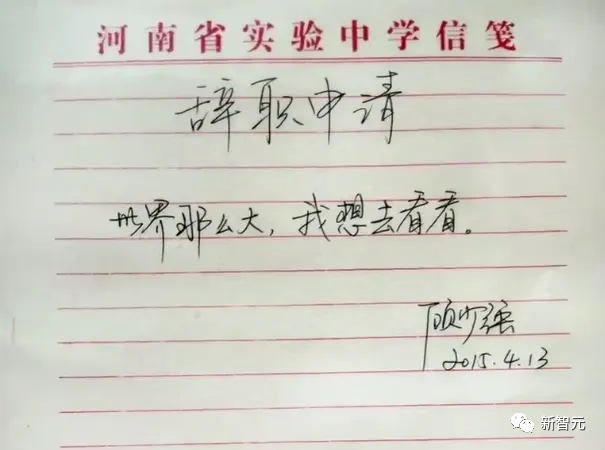 河南省实验中学信笺
辞职申请
世界那么大，我想去看看。
顾少强
2015.4.13
新智元